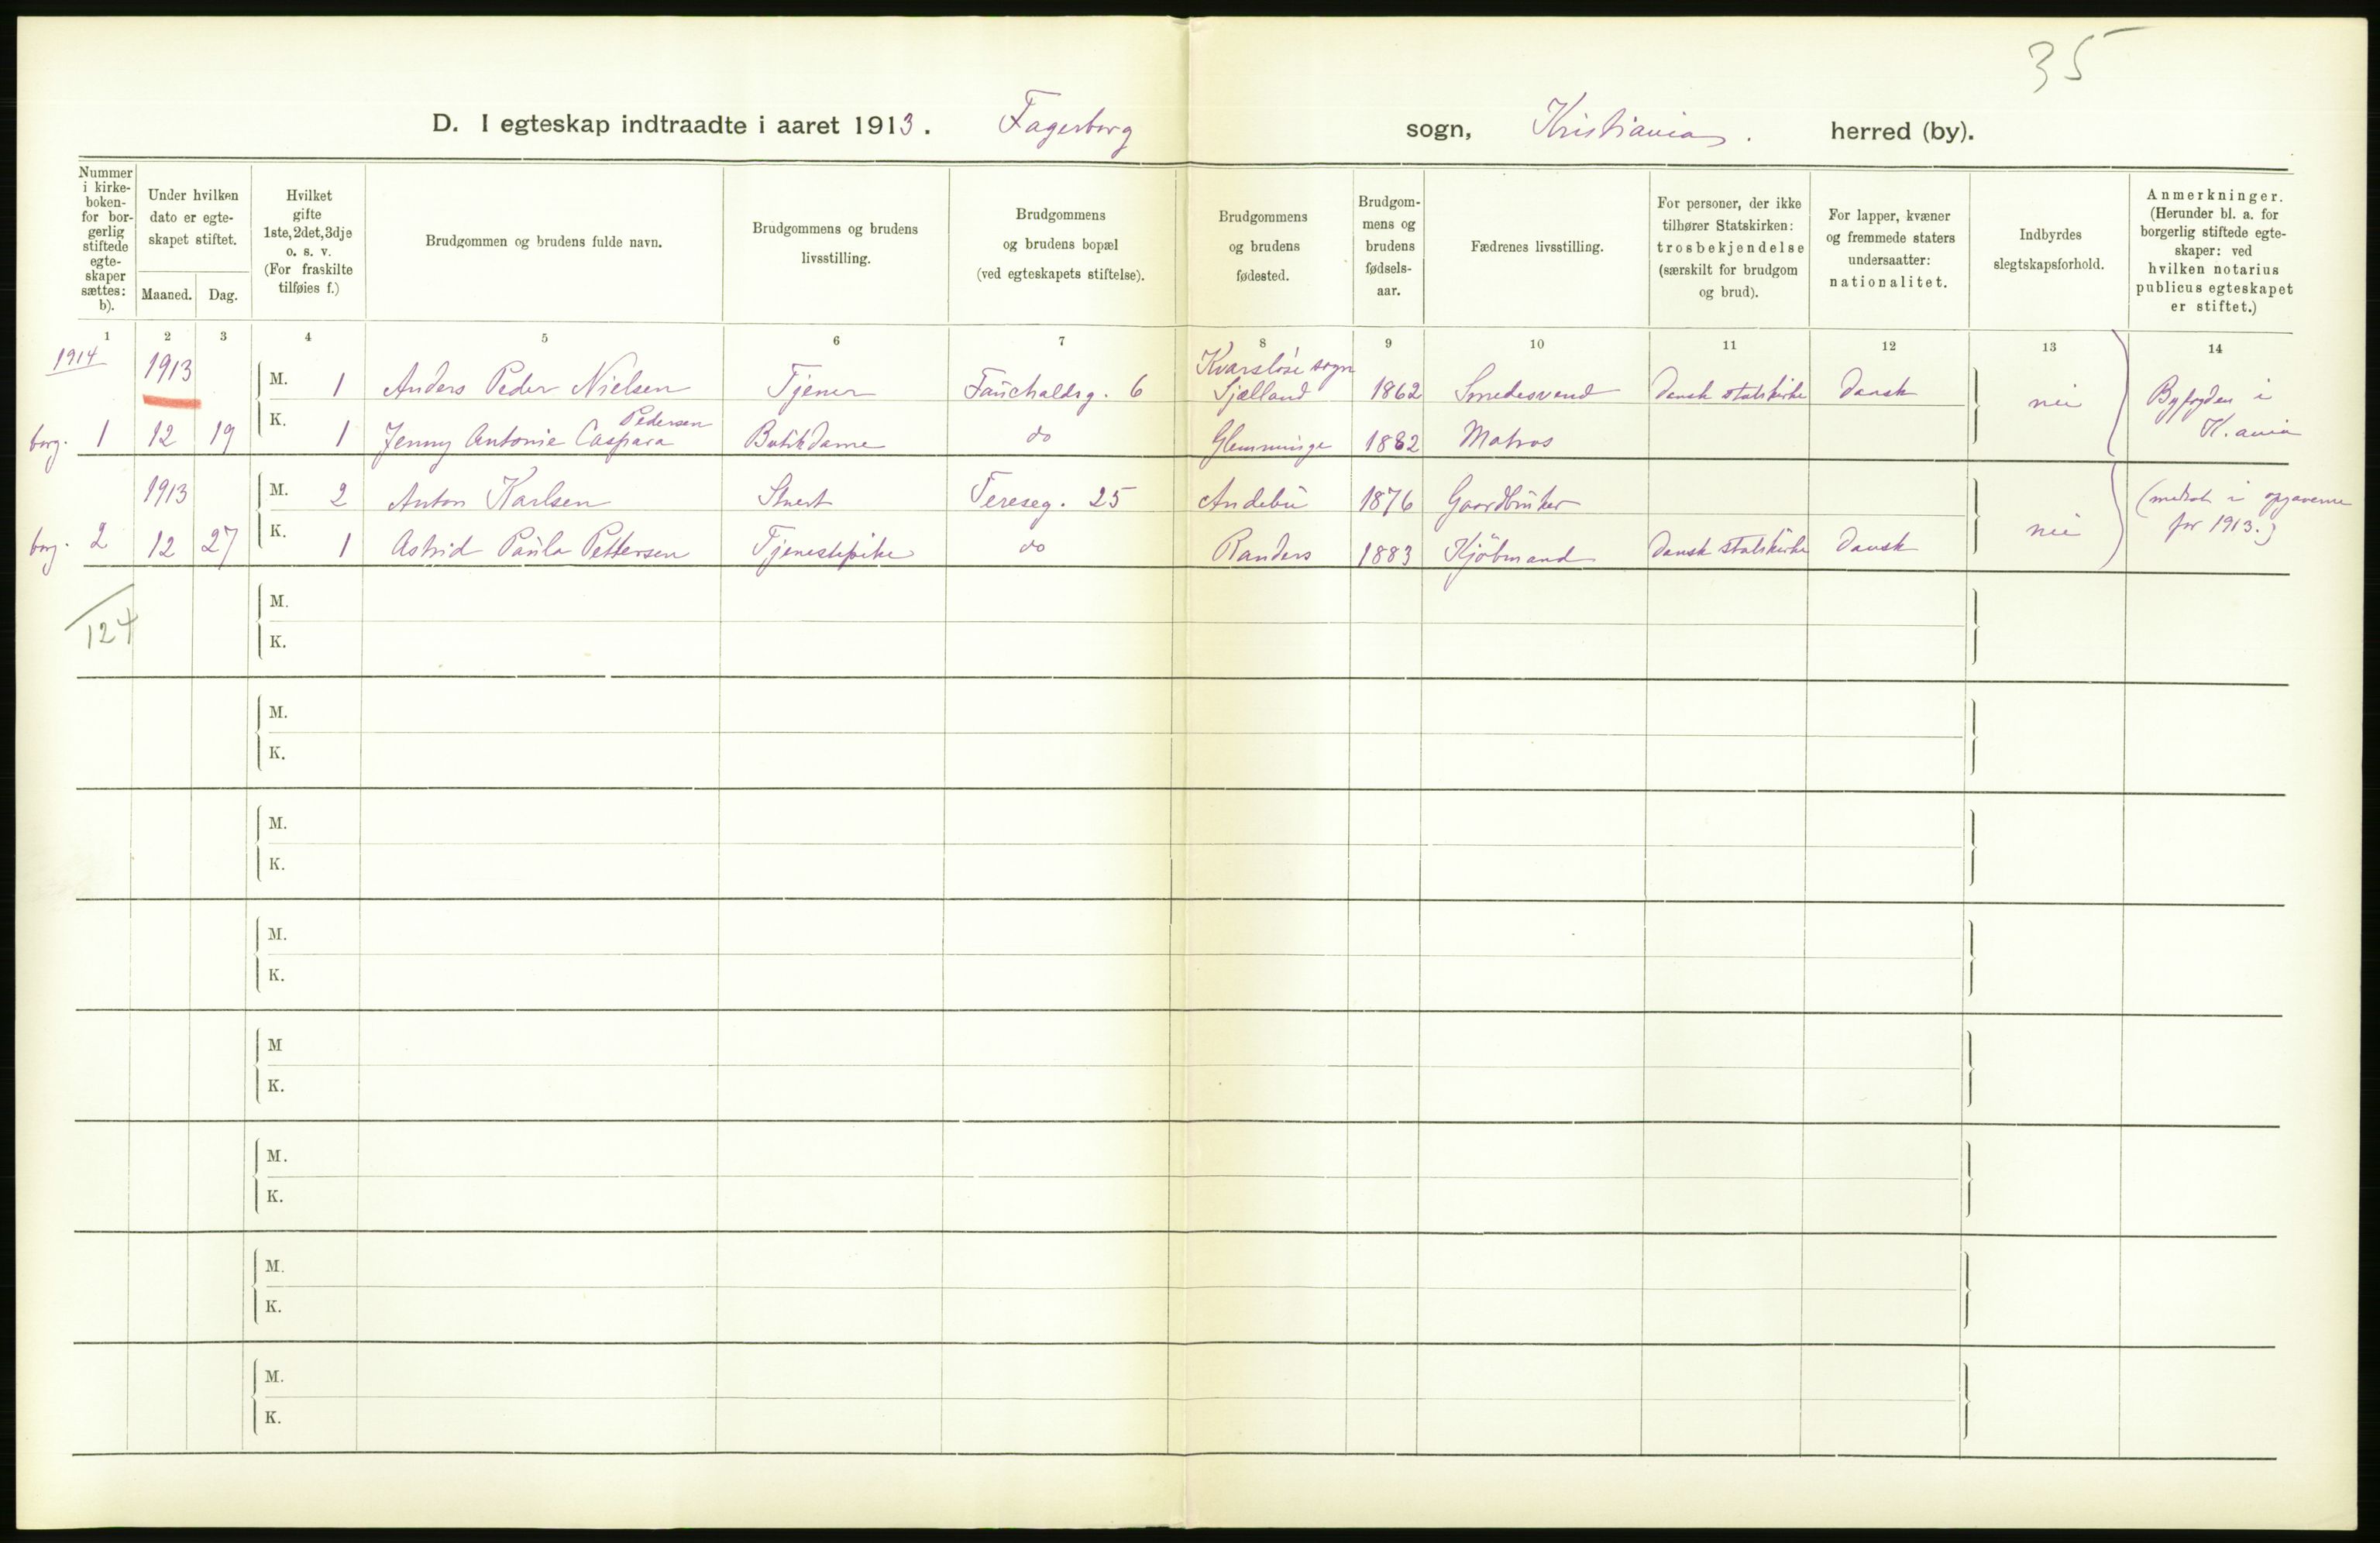 35
D. I egteskap indtraadte i aaret 1913. Fagerborg sogn, Kristiania. herred (by).
Nummer i kirke-boken- for bor-gerlig stiftede egte-skaper sættes: b).
Under hvilken dato er egte-skapet stiftet.
Maaned. Dag.
Hvilket gifte 1ste, 2det, 3dje o. s. v. (For fraskilte tilføies f.)
Brudgommen og brudens fulde navn.
Brudgommens og brudens livsstilling.
Brudgommens og brudens bopæl (ved egteskapets stiftelse).
Brudgommens og brudens fødested.
Brudgom-mens og brudens fødsels-aar.
Fædrenes livsstilling.
For personer, der ikke tilhører Statskirken: trosbekjendelse (særskilt for brudgom og brud).
For lapper, kvæner og fremmede staters undersaatter: nationalitet.
Indbyrdes slegtskapsforhold.
Anmerkninger. (Herunder bl. a. for borgerlig stiftede egte-skaper: ved hvilken notarius publicus egteskapet er stiftet.)
1 2 3 4 5 6 7 8 9 10 11 12 13 14
1914 1913 Kvarsløse sogn
M. 1 Anders Peder Nielsen Tjener Fauchaldsg. 6 Sjælland 1862 Smedesvend Dansk statskirke Dansk
nei Byfogden i
Pedersen
borg. 1 12 19 K. 1 Jenny Antonie Caspara Butikdame do Glemminge 1882 Matros K.ania
1913 M. 2 Anton Karlsen Stuert Tereseg. 25 Andebu 1876 Gaardbruker (medtat i opgaverne
borg. 2 12 27 K. 1 Astrid Paula Pettersen Tjenestepike do Randers 1883 Kjöbmand Dansk statskirke Dansk nei for 1913.)
M.
124
K.
M.
K.
M.
K.
M.
K.
M
K.
M.
K.
M.
K.
M.
K.